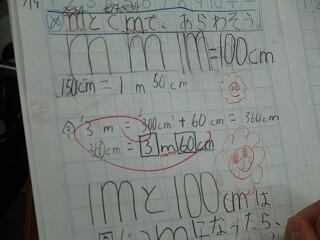 mとcmで、あらわそう。
m m 1m=100cm
150cm = 1 m 50 cm
3 m = 300cm + 60 cm = 360cm
360cm = 3 m 60 cm
1mと100cmは
mになったら、